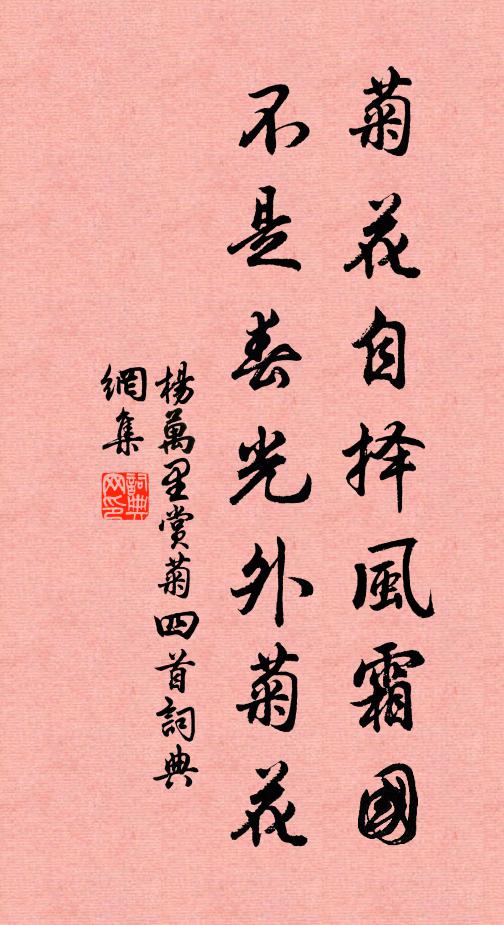 菊花自择風霜國
不是春光外菊花
楊萬里賞菊四首詞典
網集
詞典
网印